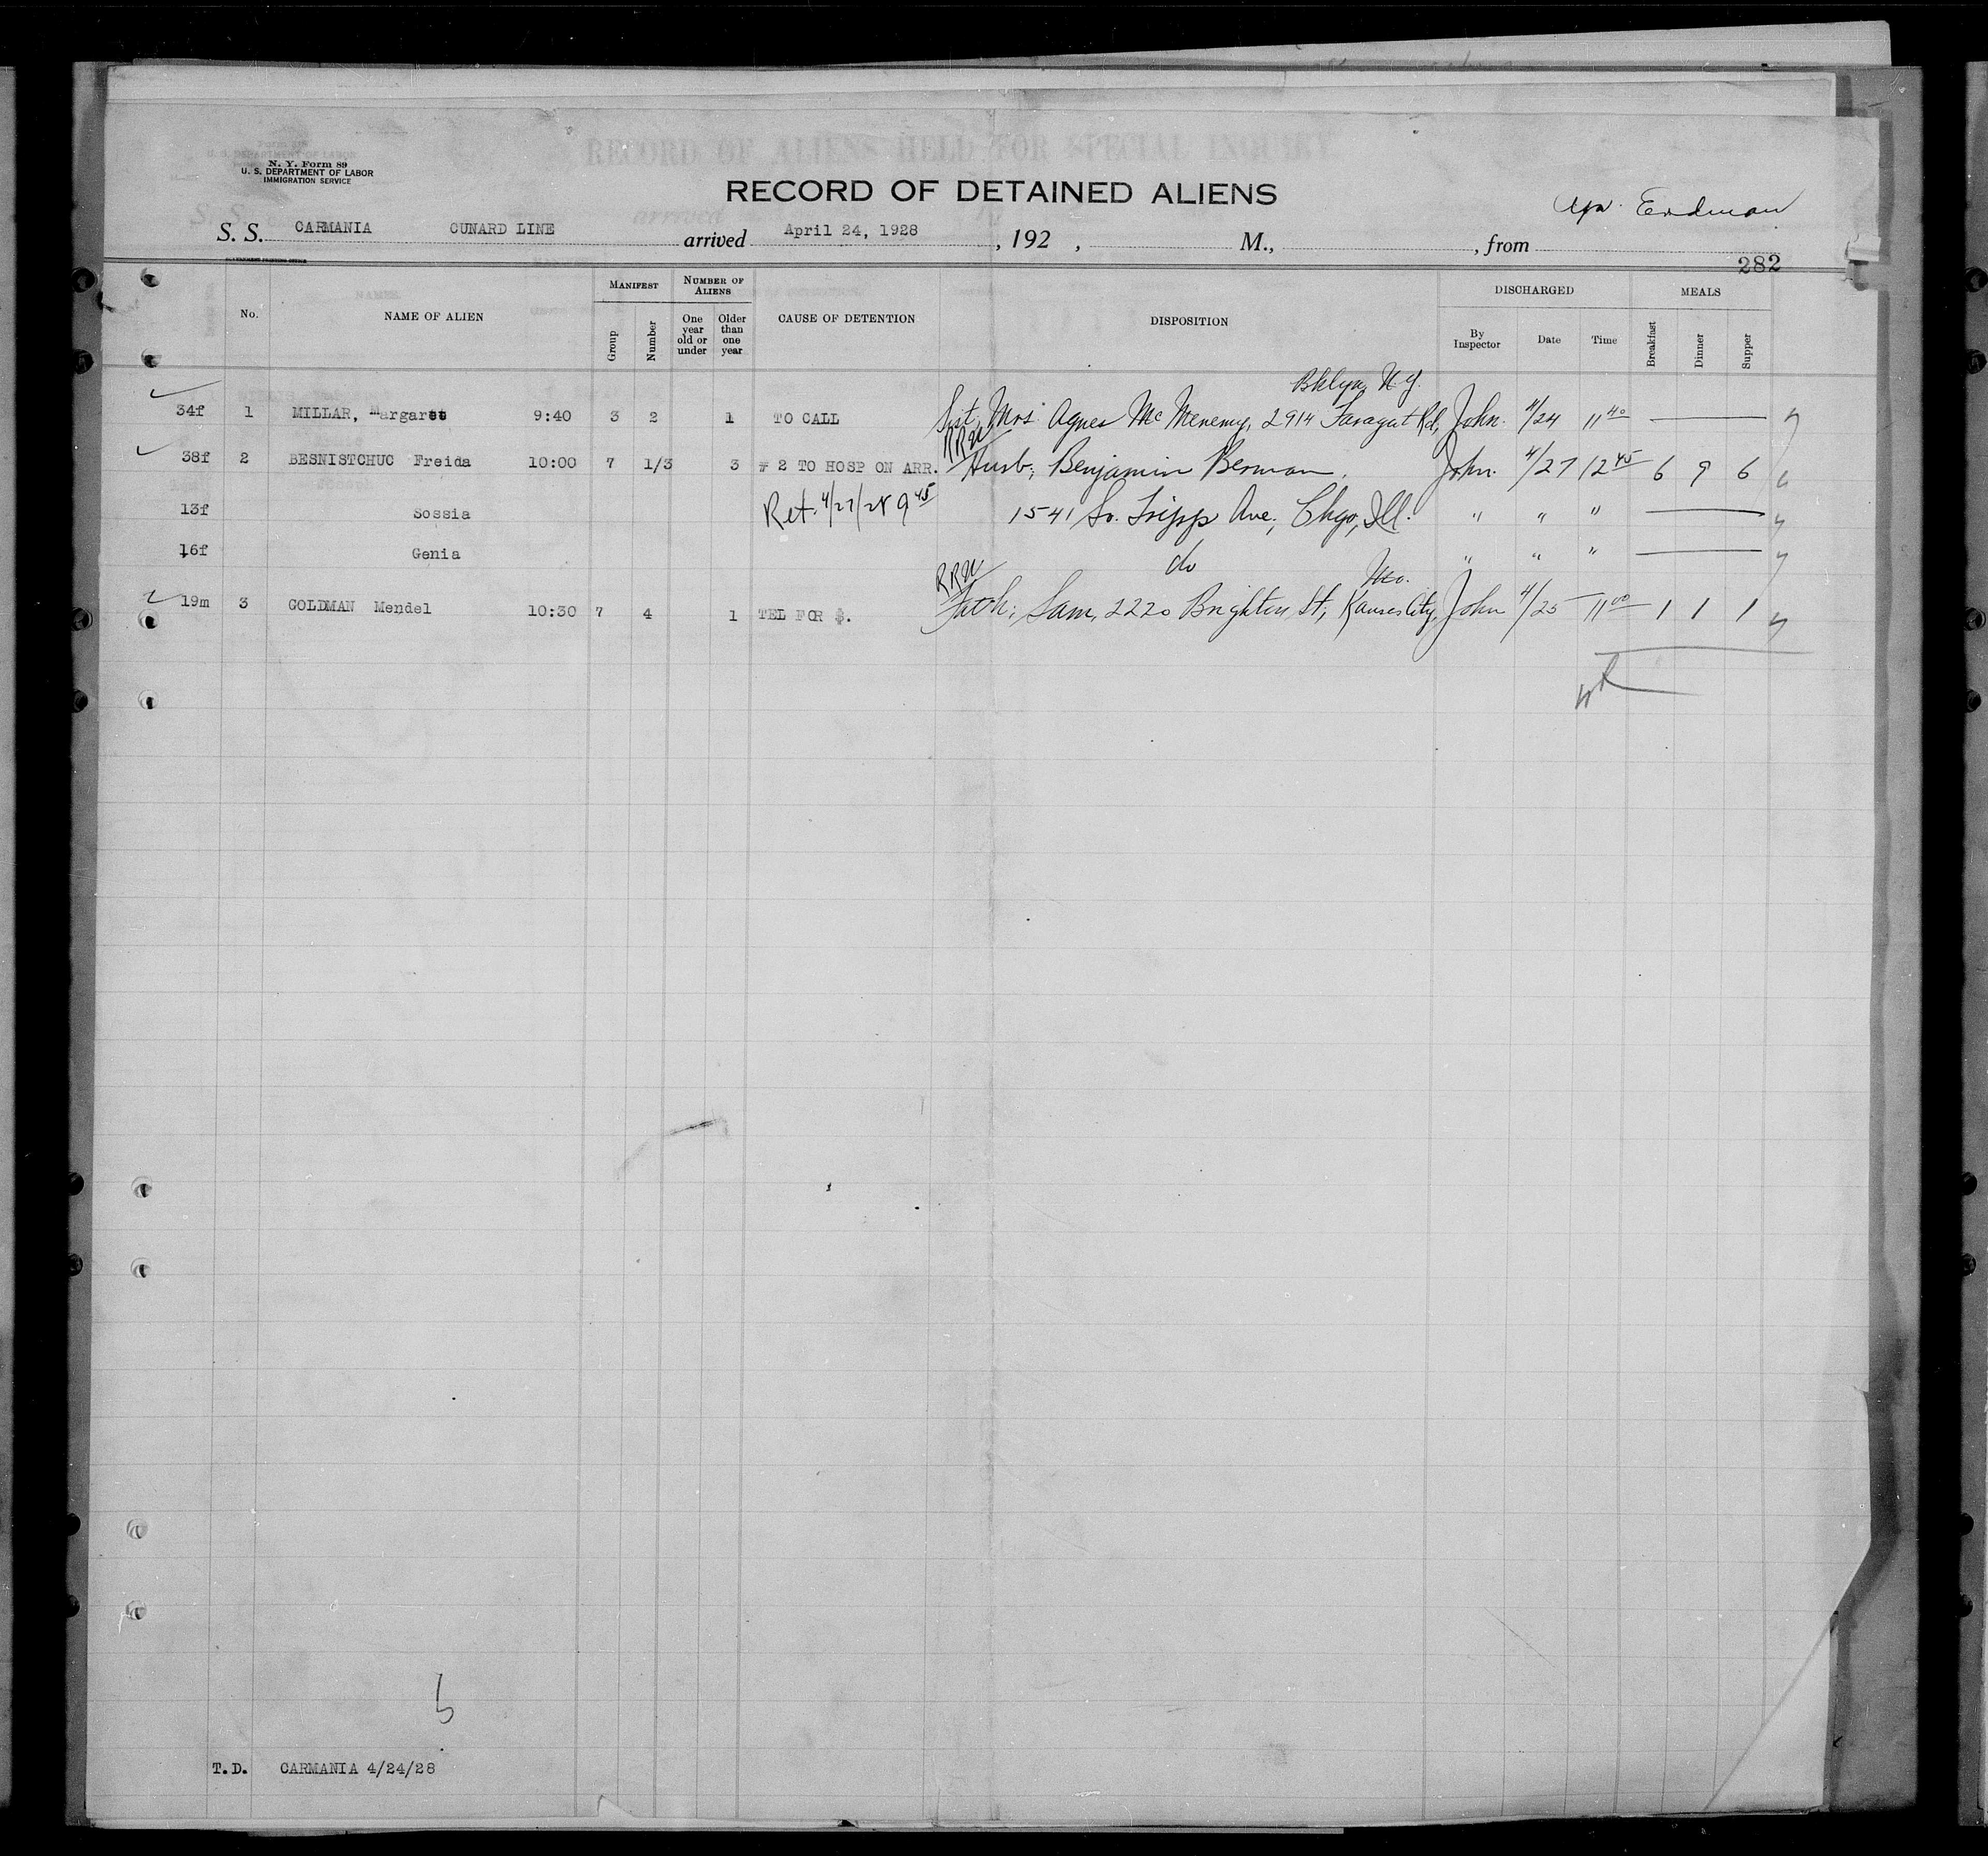 N. Y. Form 89
U. S. DEPARTMENT OF LABOR
IMMIGRATION SERVICE
RECORD OF ALIENS HELD FOR SPECIAL INQUIRY
RECORD OF DETAINED ALIENS
Erdman
S. S. CARMANIA CUNARD LINE arrived April 24, 1928 , 192 , M., , from
GOVERNMENT PRINTING OFFICE
282
No. NAME OF ALIEN MANIFEST NUMBER OF ALIENS CAUSE OF DETENTION DISPOSITION DISCHARGED MEALS
Group Number One year old or under Older than one year By Inspector Date Time Breakfast Dinner Supper
Bklyn, N.Y.
34f 1 MILLAR, Margaret 9:40 3 2 1 TO CALL Sist, Mrs. Agnes McMenemy, 2914 Faragut Rd, John. 4/24 11 40
RRU
38f 2 BESNISTCHUC Freida 10:00 7 1/3 3 # 2 TO HOSP ON ARR. Husb; Benjamin Berman, John. 4/27 12 45 6 9 6
13f Sossia Ret. 4/27/28 9 45 1541 So. Tripp Ave; Chgo, Ill. " " "
16f Genia do " " "
RRU Mo.
19m 3 GOLDMAN Mendel 10:30 7 4 1 TEL FOR $. Fath; Sam, 2220 Brighton St; Kansas City, John 4/25 11 00 1 1 1
T.D. CARMANIA 4/24/28